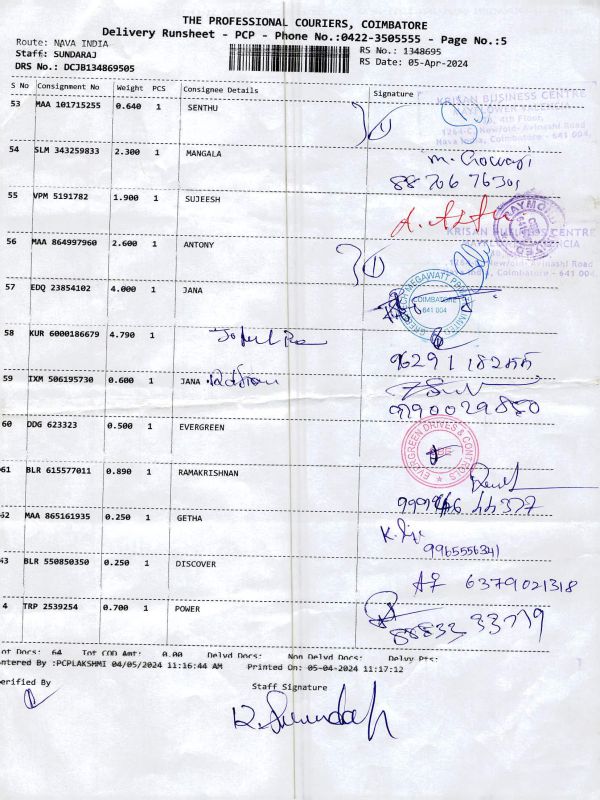 THE PROFESSIONAL COURIERS, COIMBATORE
Delivery Runsheet - PCP - Phone No.:0422-3505555 - Page No.:5
Route: NAVA INDIA
Staff: SUNDARAJ
DRS No.: DCJB134869505
RS No.: 1348695
RS Date: 05-Apr-2024
S No Consignment No Weight PCS Consignee Details Signature
KRISAN BUSINESS CENTRE
53 MAA 101715255 0.640 1 SENTHU
4th Floor,
Avinashi Road
Nava India, Coimbatore - 641 004
54 SLM 343259833 2.300 1 MANGALA
88706 76301
55 VPM 5191782 1.900 1 SUJEESH
RAYMOND
KRISAN BUSINESS CENTRE
56 MAA 864997960 2.600 1 ANTONY
Coimbatore - 641 004
57 EDQ 23854102 4.000 1 JANA
MEGAWATT
COIMBATORE
641 004
58 KUR 6000186679 4.790 1
59 IXM 506195730 0.600 1 JANA
60 DDG 623323 0.500 1 EVERGREEN
EVERGREEN DRIVES & CONTROLS
61 BLR 615577011 0.890 1 RAMAKRISHNAN
44377
62 MAA 865161935 0.250 1 GETHA
9965556341
63 BLR 550850350 0.250 1 DISCOVER
6379021318
4 TRP 2539254 0.700 1 POWER
88833 33779
ot Docs: 64 Tot COD Amt: 0.00 Delvd Docs: Non Delvd Docs: Delvy Pts:
ntered By :PCPLAKSHMI 04/05/2024 11:16:44 AM Printed On: 05-04-2024 11:17:12
erified By
Staff Signature